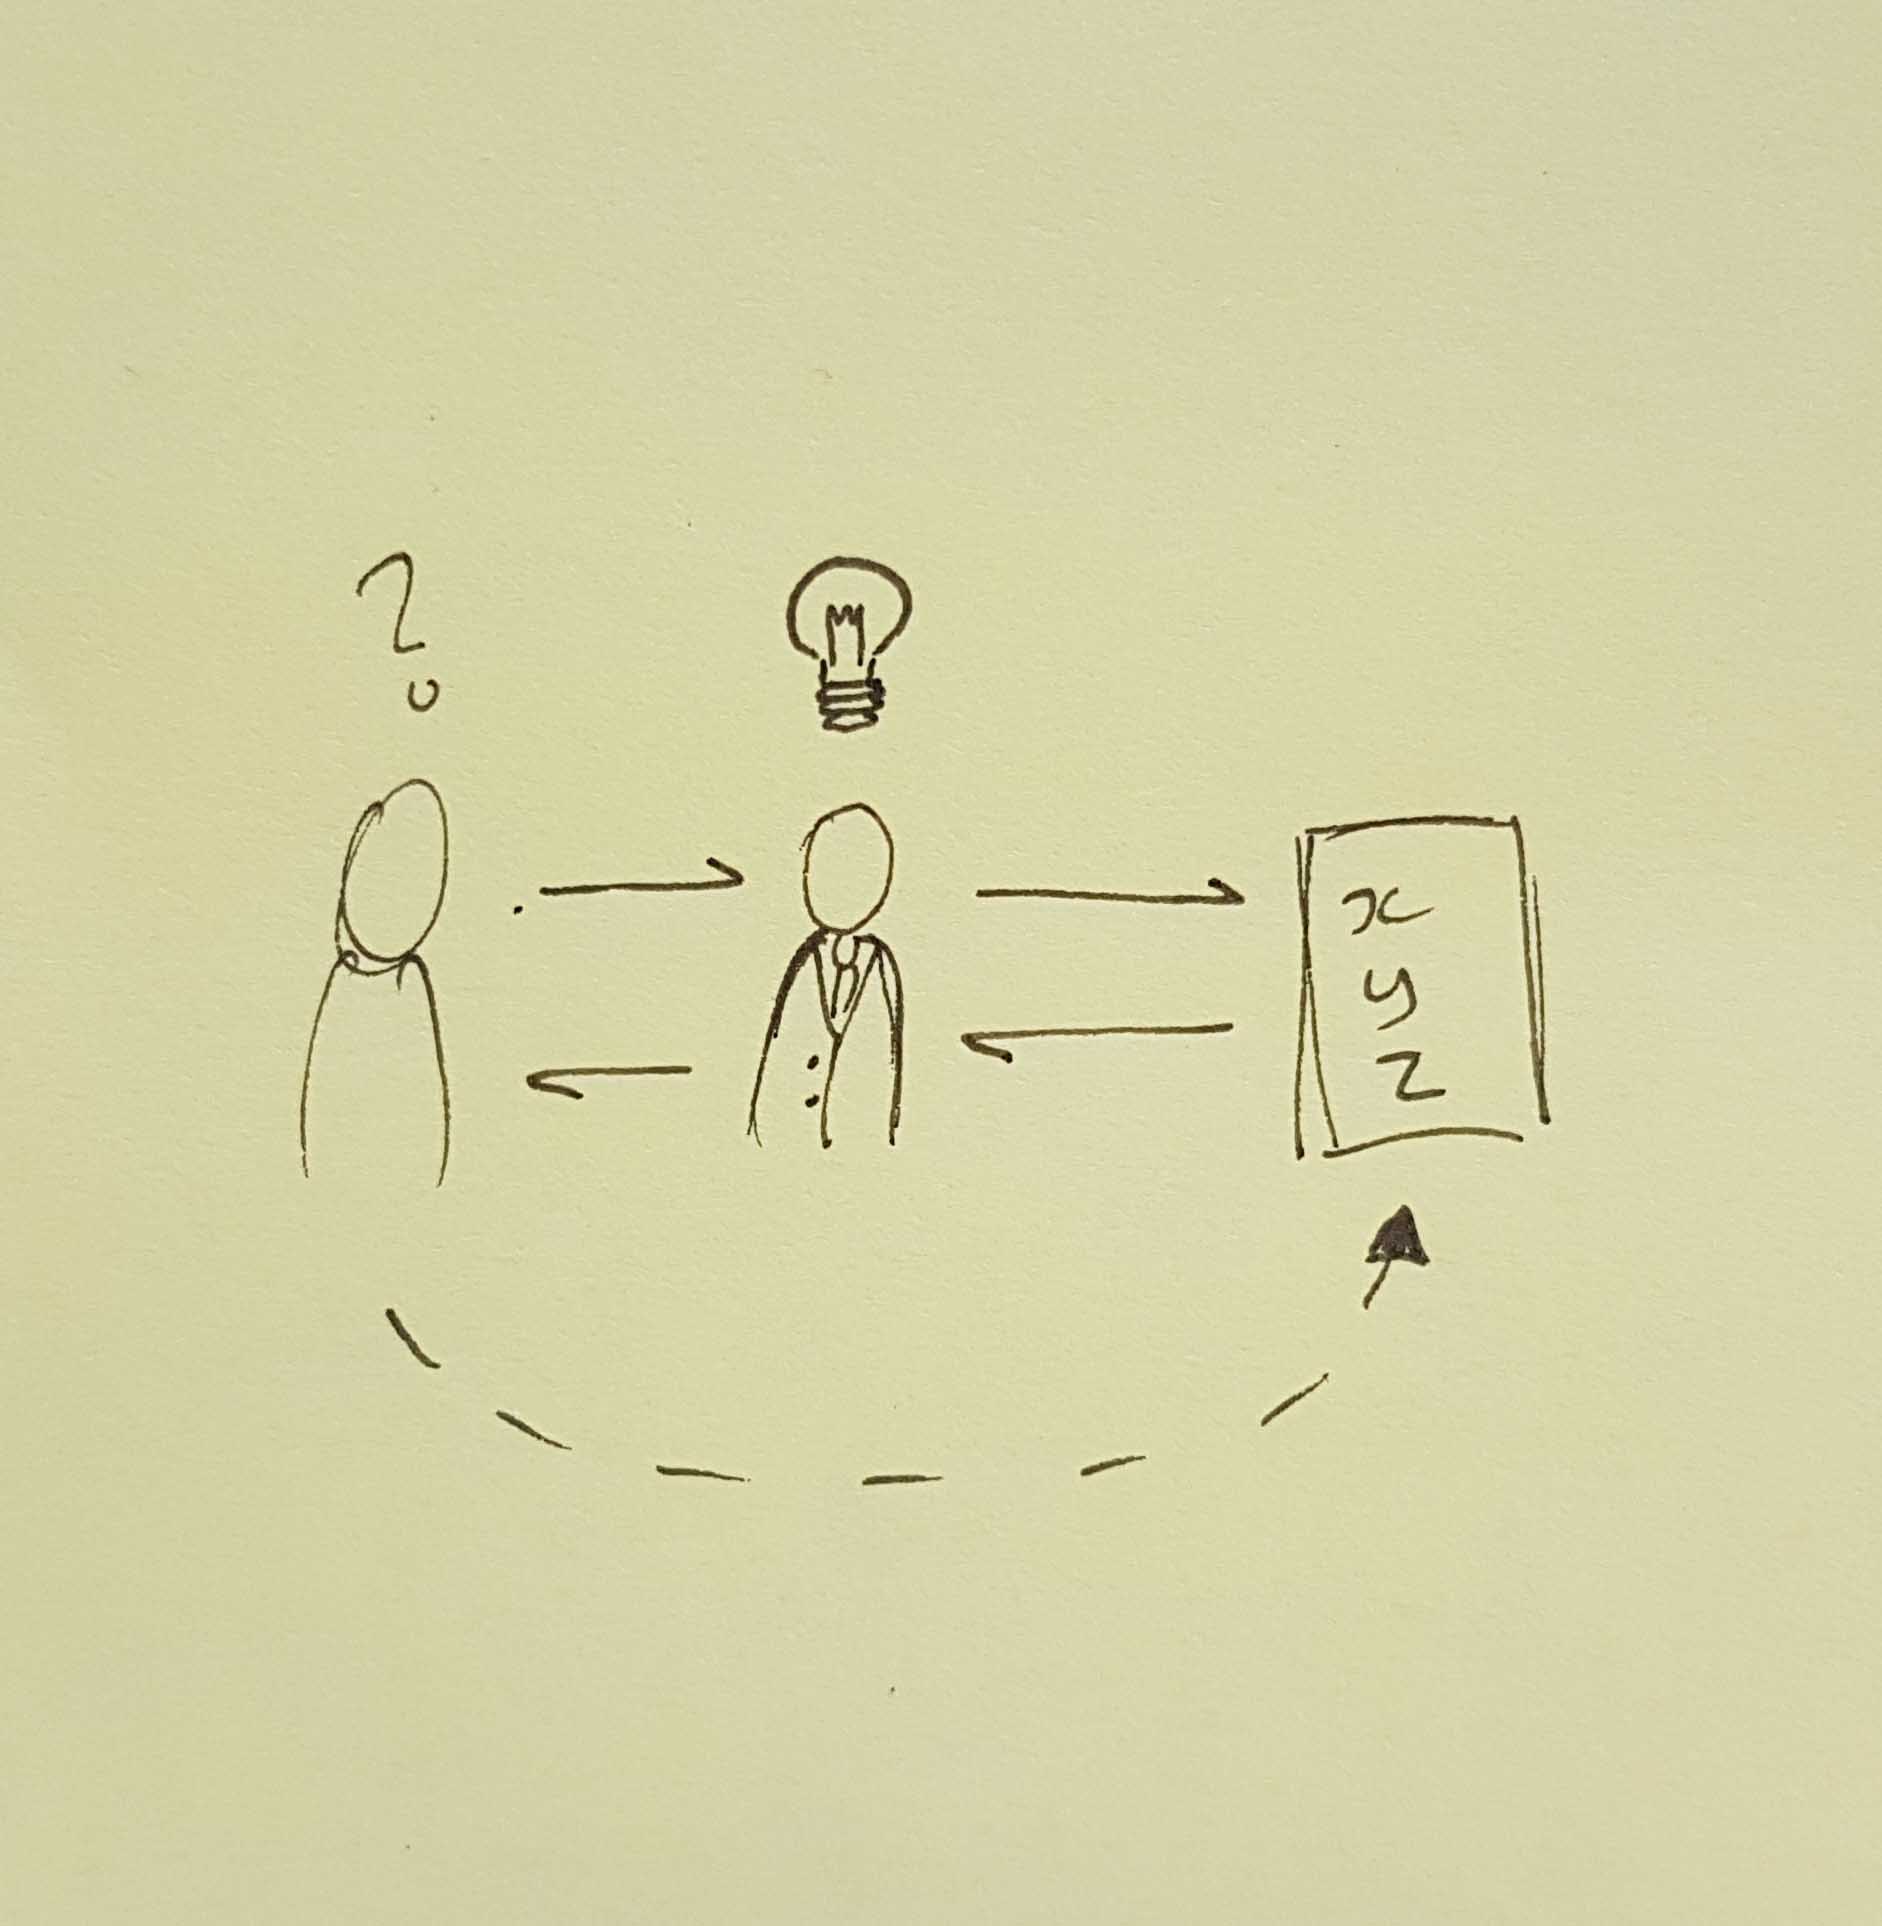 ?
x
y
z